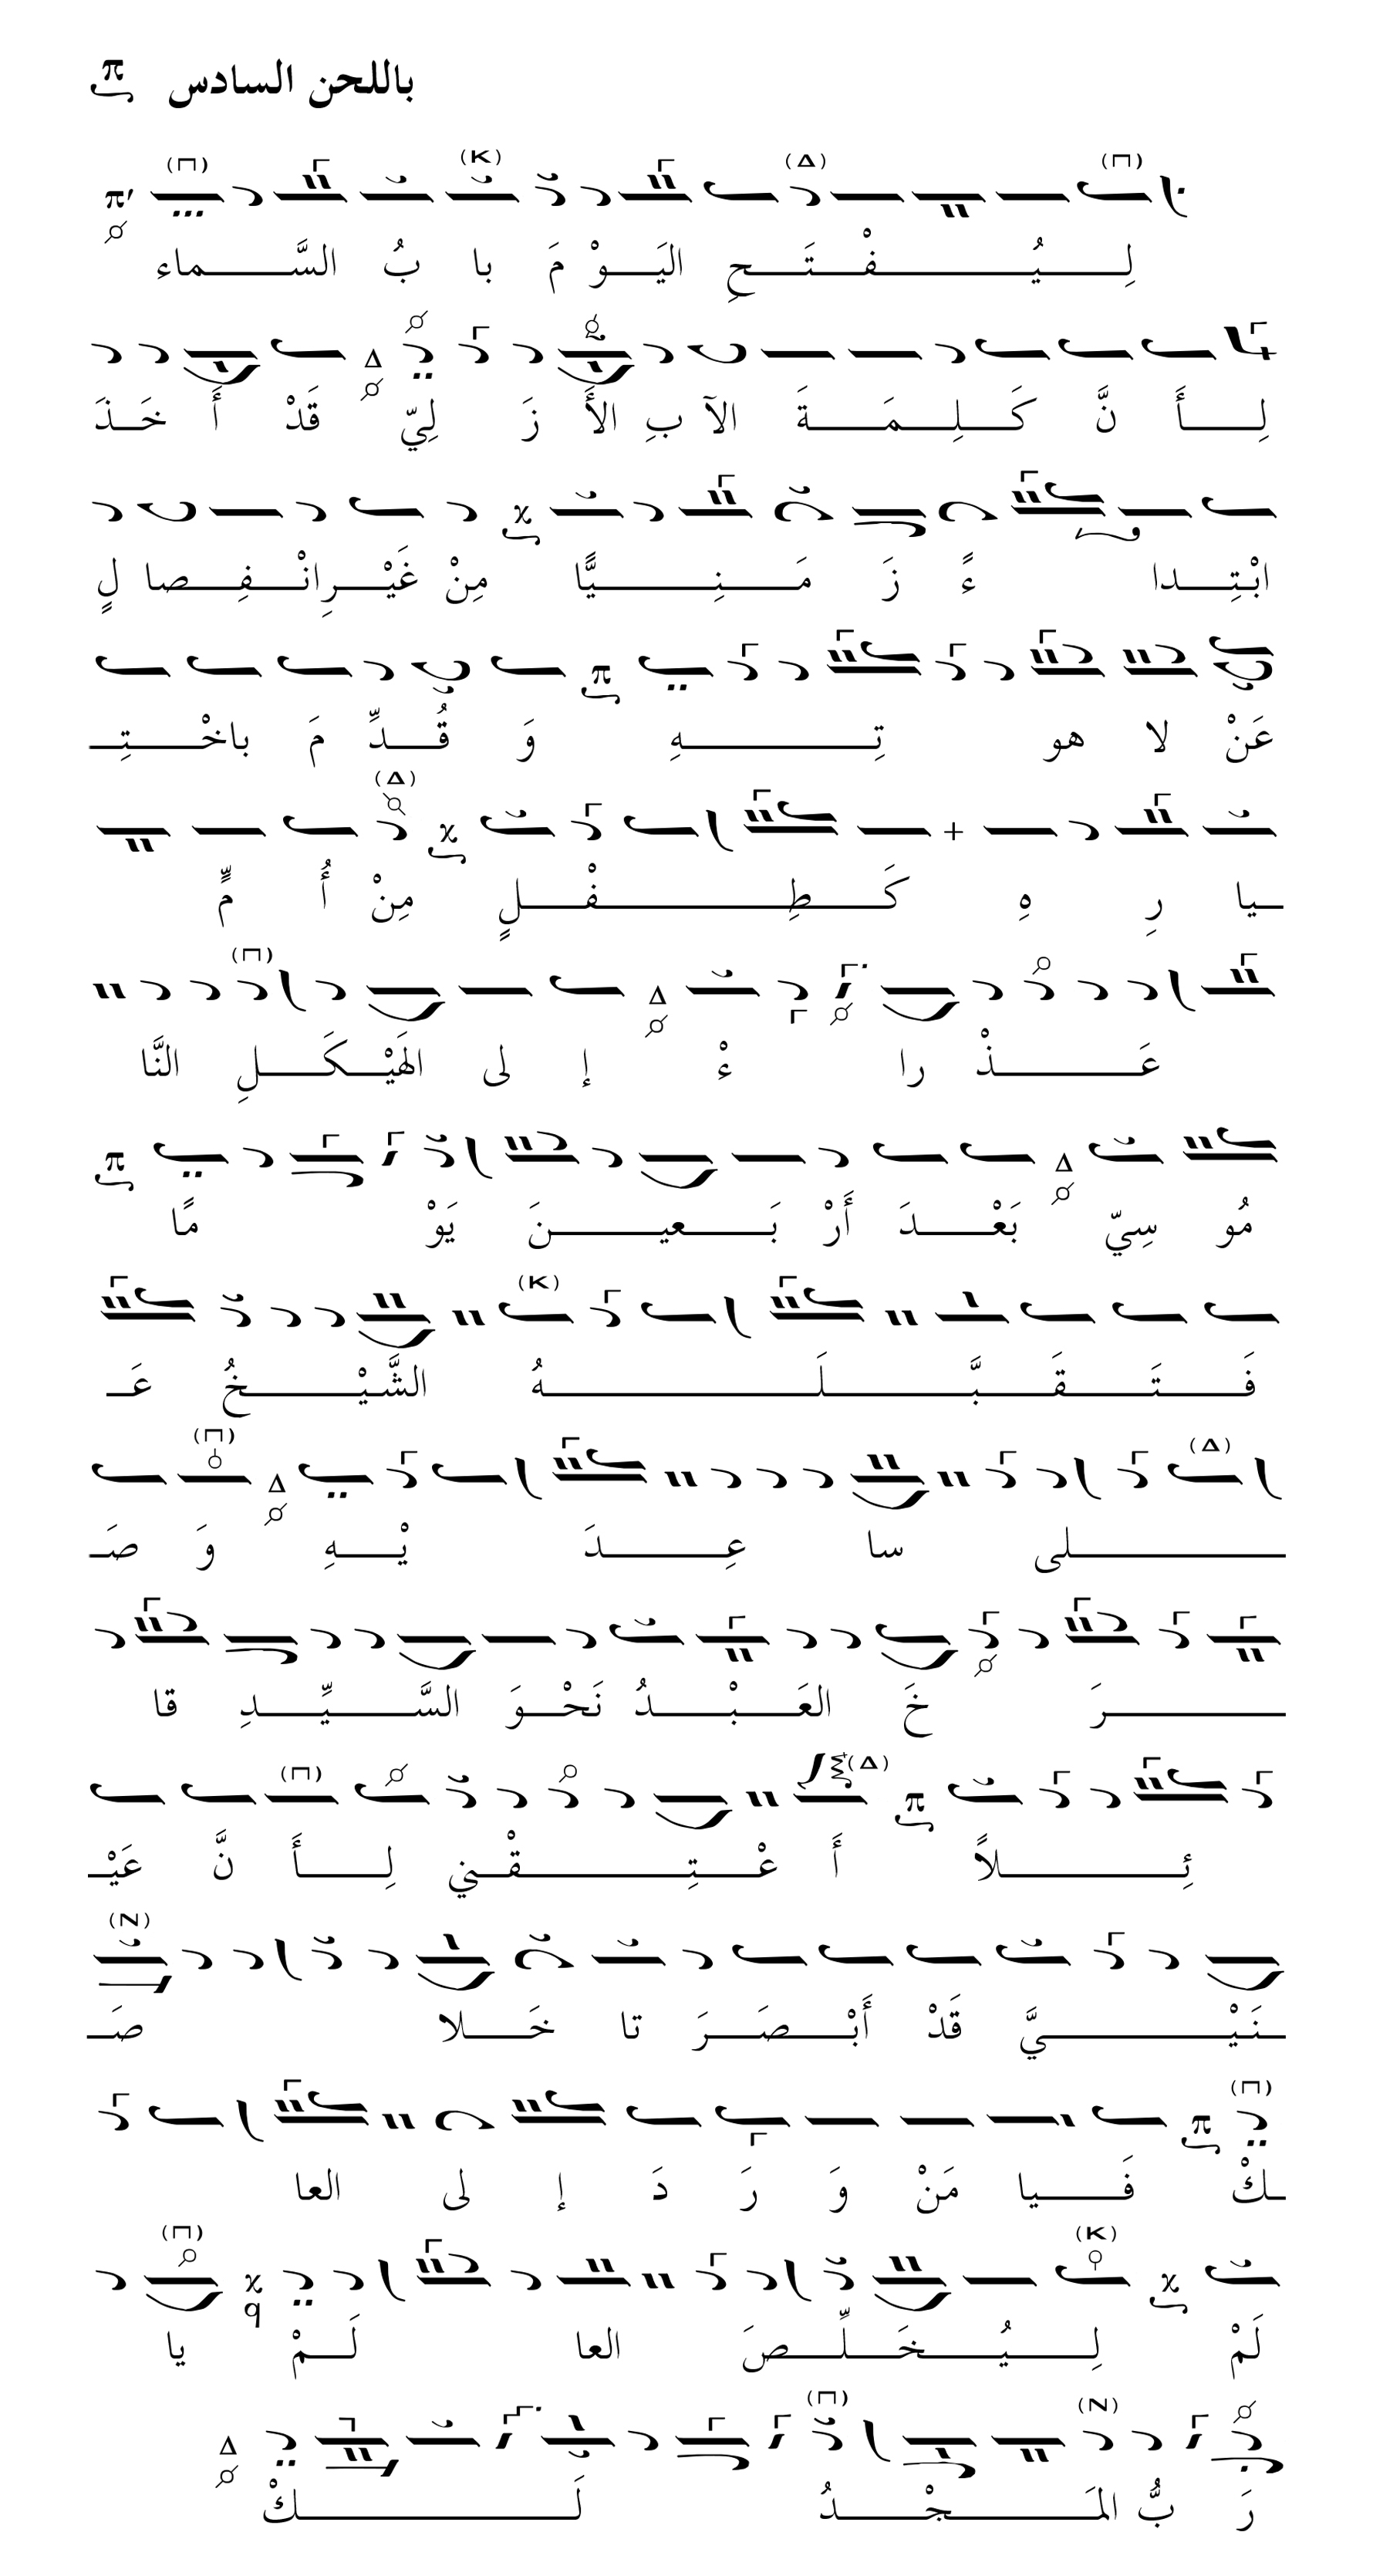 باللحن السادس
لِـيُـفْـتَـحِ اليَـوْمَ بابُ السَّـماء
لِـأَنَّ كَـلِـمَـةَ الآبِ الأَزَلِيّ قَدْ أَخَـذَ
ابْـتِـداءً زَمَـنِـيًّا مِنْ غَيْـرِ انْـفِـصالٍ
عَنْ لاهوتِـهِ وَقُـدِّمَ باخْـتِـ
ـيارِهِ كَـطِـفْـلٍ مِنْ أُمٍّ
عَـذْراءْ إلى الهَيْـكَـلِ النَّا
مُوسِيّ بَعْـدَ أَرْبَـعيـنَ يَوْمًا
فَـتَـقَـبَّـلَـهُ الشَّيْـخُ عَـ
ـلى ساعِـدَيْـهِ وَصَـ
ـرَخَ العَـبْـدُ نَحْـوَ السَّـيِّـدِ قا
ئِـلاً أَعْـتِـقْـني لِـأَنَّ عَيْـ
ـنَيْـيَّ قَدْ أَبْـصَـرَتا خَـلاصَـ
ـكْ فَـيا مَنْ وَرَدَ إلى العا
لَمْ لِـيُـخَـلِّـصَ العالَـمْ يا
رَبُّ المَـجْـدُ لَـكْ